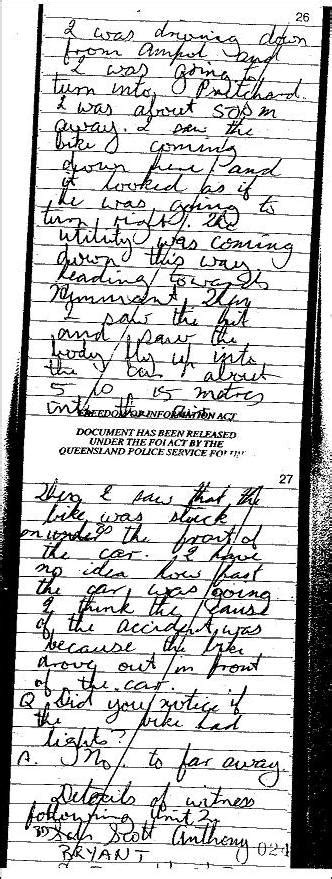 26
I was driving down
from Ampol and
I was going to
turn into Pritchard.
I was about 50 m
away. I saw the
bike coming
down here and
it looked as if
he was going to
turn right. The
utility was coming
down this way
heading towards
Wynnum. Then
I saw the hit
and saw the
body fly up into
the air about
5 10 15 metres
into the air
FREEDOM OF INFORMATION ACT
DOCUMENT HAS BEEN RELEASED
UNDER THE FOI ACT BY THE
QUEENSLAND POLICE SERVICE FOI
27
Then I saw that the
bike was stuck
on under the front of
the car. I have
no idea how fast
the car was going
I think the cause
of the accident was
because the bike
drove out in front
of the car.
Q Did you notice if
the bike had
lights?
A. No. to far away
Details of witness
following Unit 2.
Scott Anthony 024
BRYANT